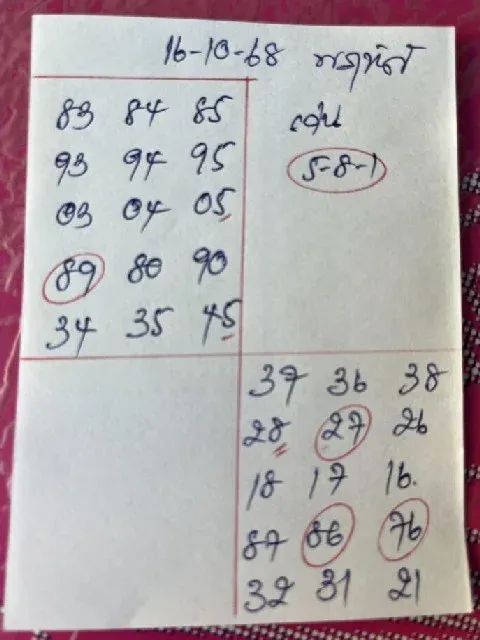 16-10-68 พฤหัส
83 84 85
เด่น
93 94 95
5-8-1
03 04 05
89 80 90
34 35 45
37 36 38
28 27 26
18 17 16.
87 86 76
32 31 21